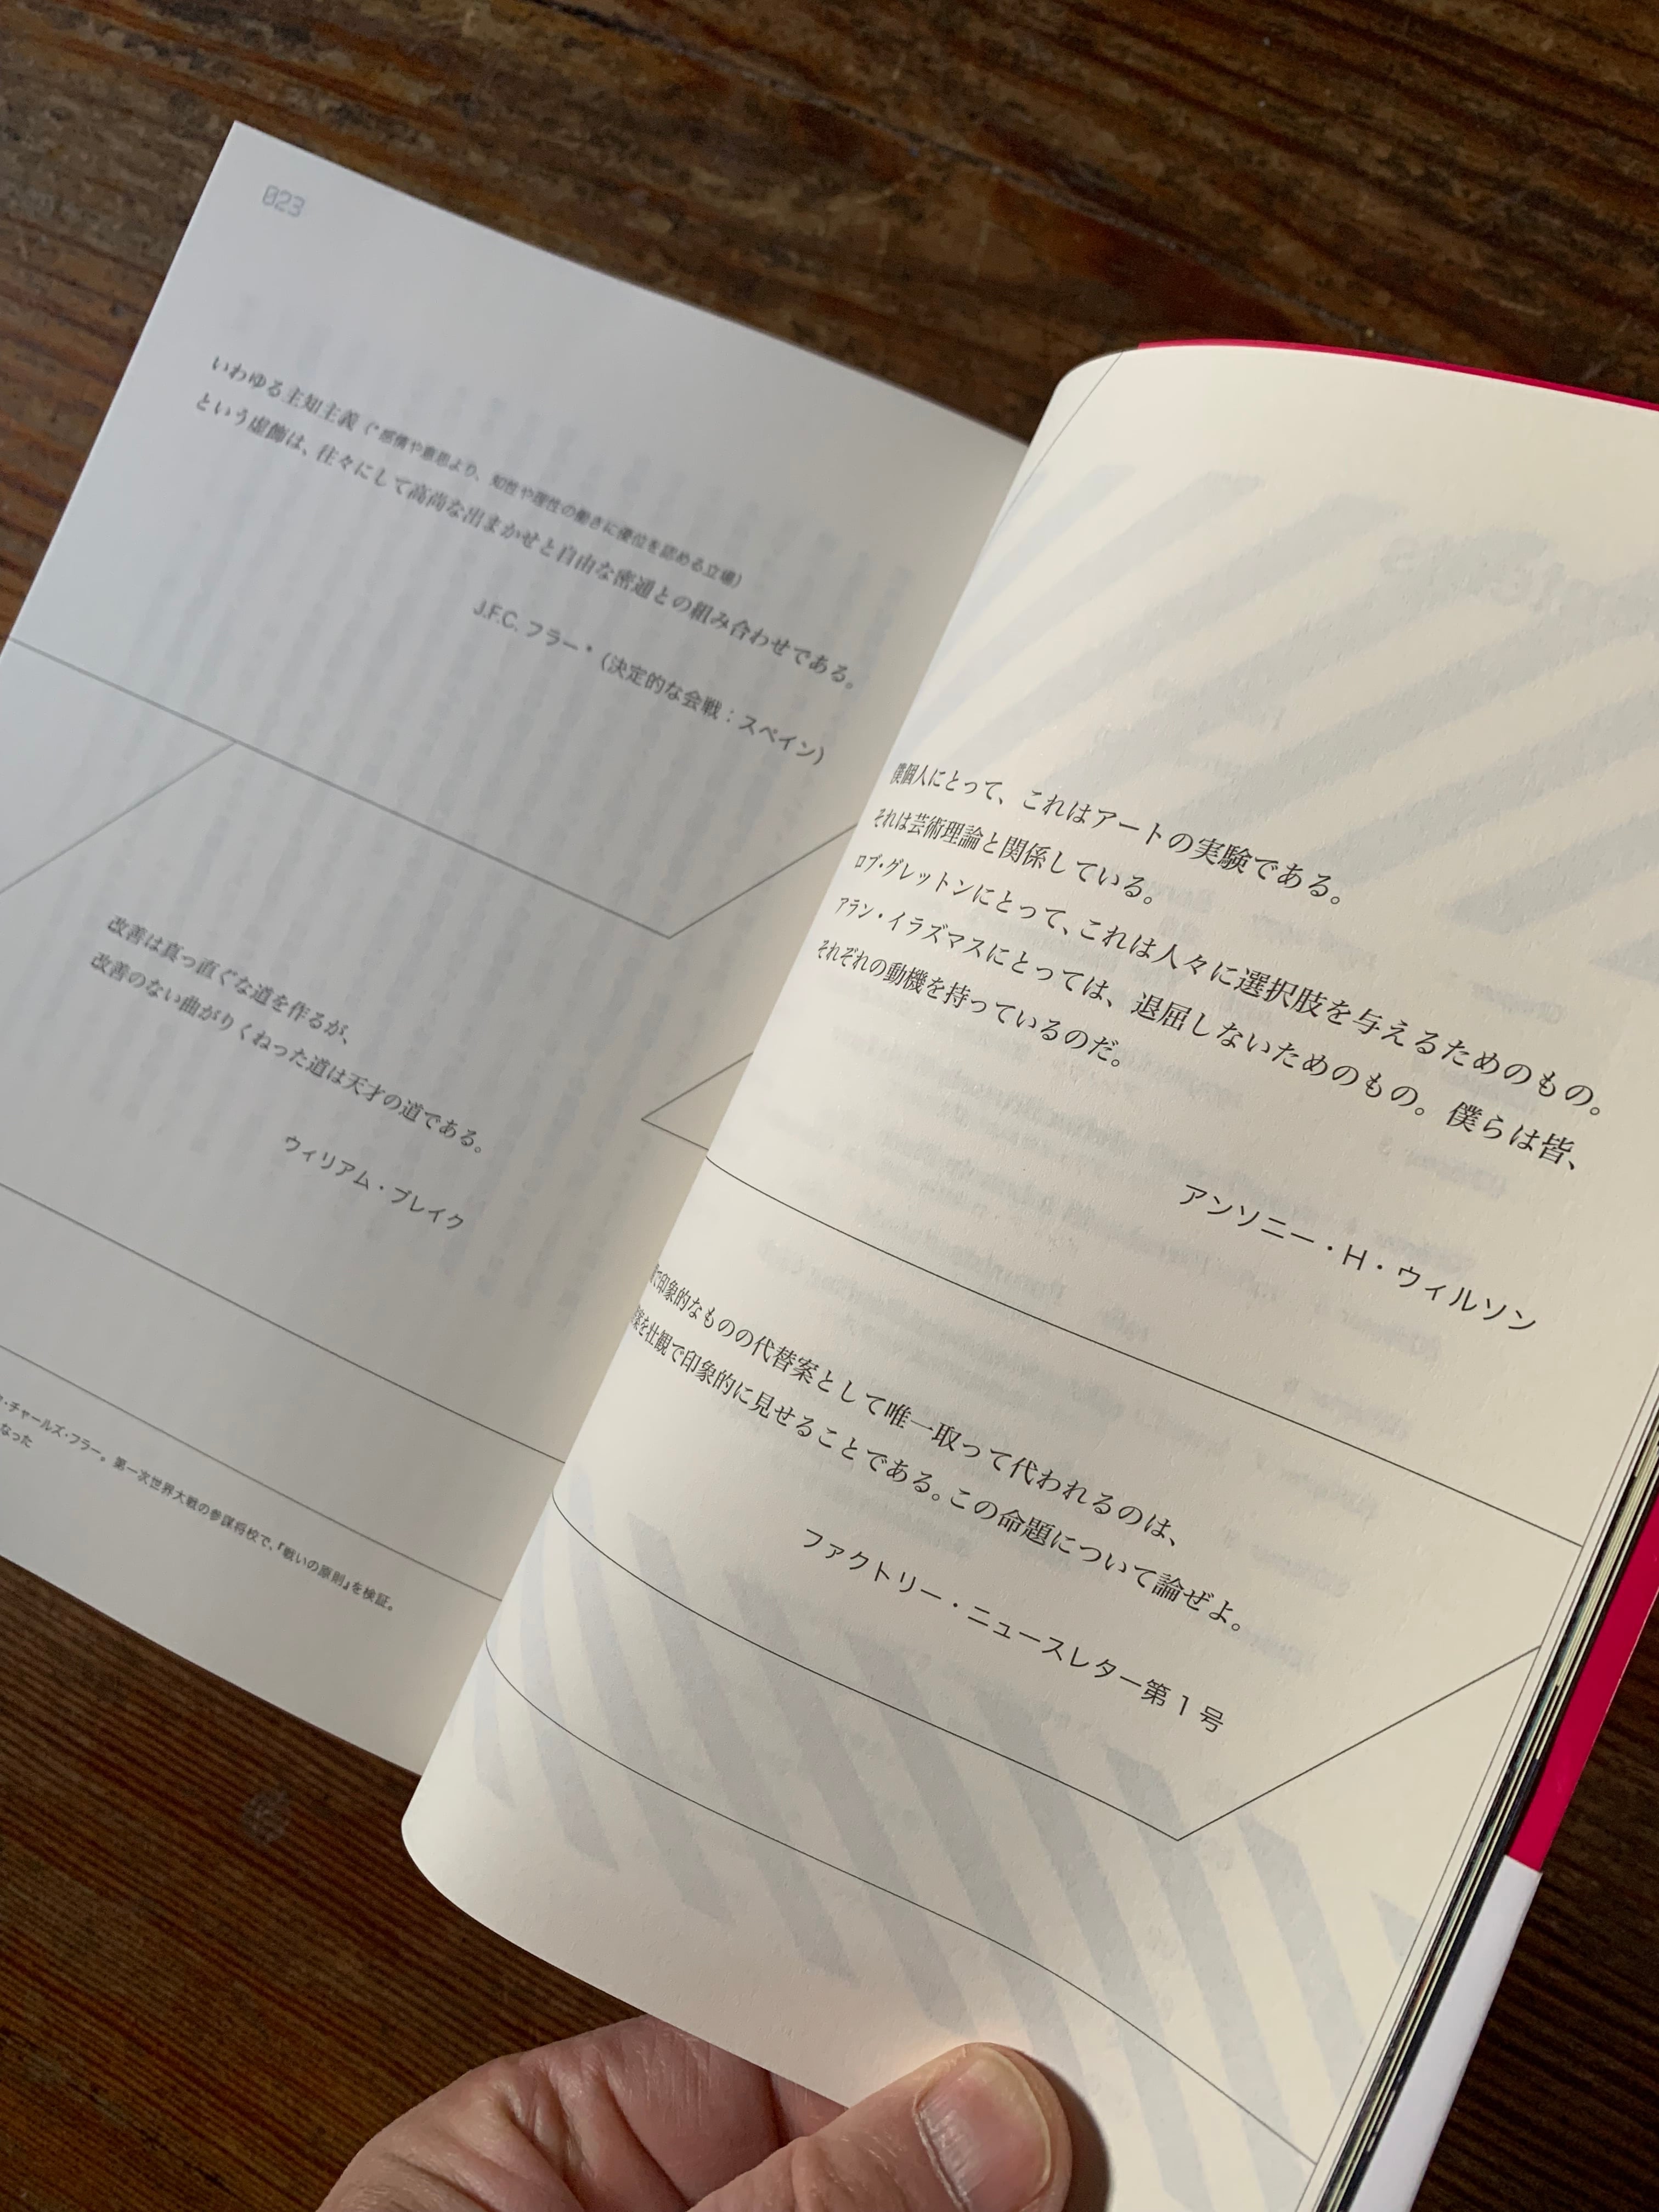 023
いわゆる主知主義（*感情や意思より、知性や理性の働きに優位を認める立場）
という虚飾は、往々にして高尚な出まかせと自由な密通との組み合わせである。
J.F.C. フラー*（決定的な会戦：スペイン）
改善は真っ直ぐな道を作るが、
改善のない曲がりくねった道は天才の道である。
ウィリアム・ブレイク
・チャールズ・フラー。第一次世界大戦の参謀将校で、『戦いの原則』を検証。
なった
僕個人にとって、これはアートの実験である。
それは芸術理論と関係している。
ロブ・グレットンにとって、これは人々に選択肢を与えるためのもの。
アラン・イラズマスにとっては、退屈しないためのもの。僕らは皆、
それぞれの動機を持っているのだ。
アンソニー・H・ウィルソン
で印象的なものの代替案として唯一取って代われるのは、
案を壮観で印象的に見せることである。この命題について論ぜよ。
ファクトリー・ニュースレター第1号